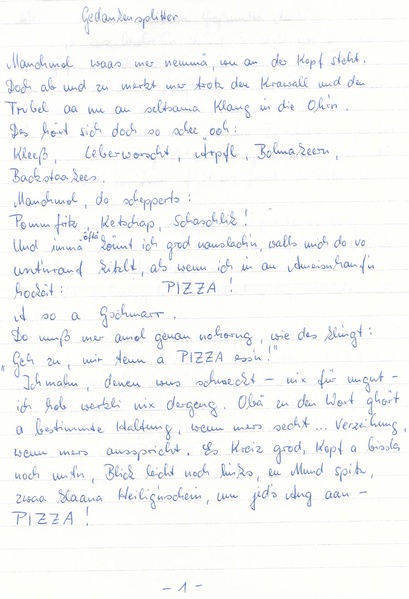 Gedankensplitter
Manchmol waas mer nemmä, wu an der Kopf steht.
Doch ab und zu merkt mer trotz den Krawall und den
Trubel aa nu an seltsama Klang in die Ohrn.
Des hört sich doch so schee ooh:
Kleeß, Leberworscht, Ärpfl, Bolmakeern,
Backstaakees.
Manchmol, do schepperts:
Pommfritz, Ketschap, Schaschlik!
Und immä öftä könnt ich grod nauslachn, walls mich do vo
untnrauf kitzlt, als wenn ich in an Ameisnhaufn
hockät: PIZZA!
A so a Gschmarr.
Do muß mer amol genau nohorng, wie des klingt:
"Geh zu, mir tenn a PIZZA essn!"
Ich mahn, denen wus schmeckt – nix für ungut –
ich hob werkli nix dergeng. Obä zu den Wort ghört
a bestimmte Haltung, wenn mers secht ... Verzeihung,
wenn mers ausspricht. Es Kreiz grod, Kopf a bissla
noch untn, Blick leicht noch links, en Mund spitz,
zwaa klaana Heilignschein, um jeds Aug aan –
PIZZA!
– 1 –